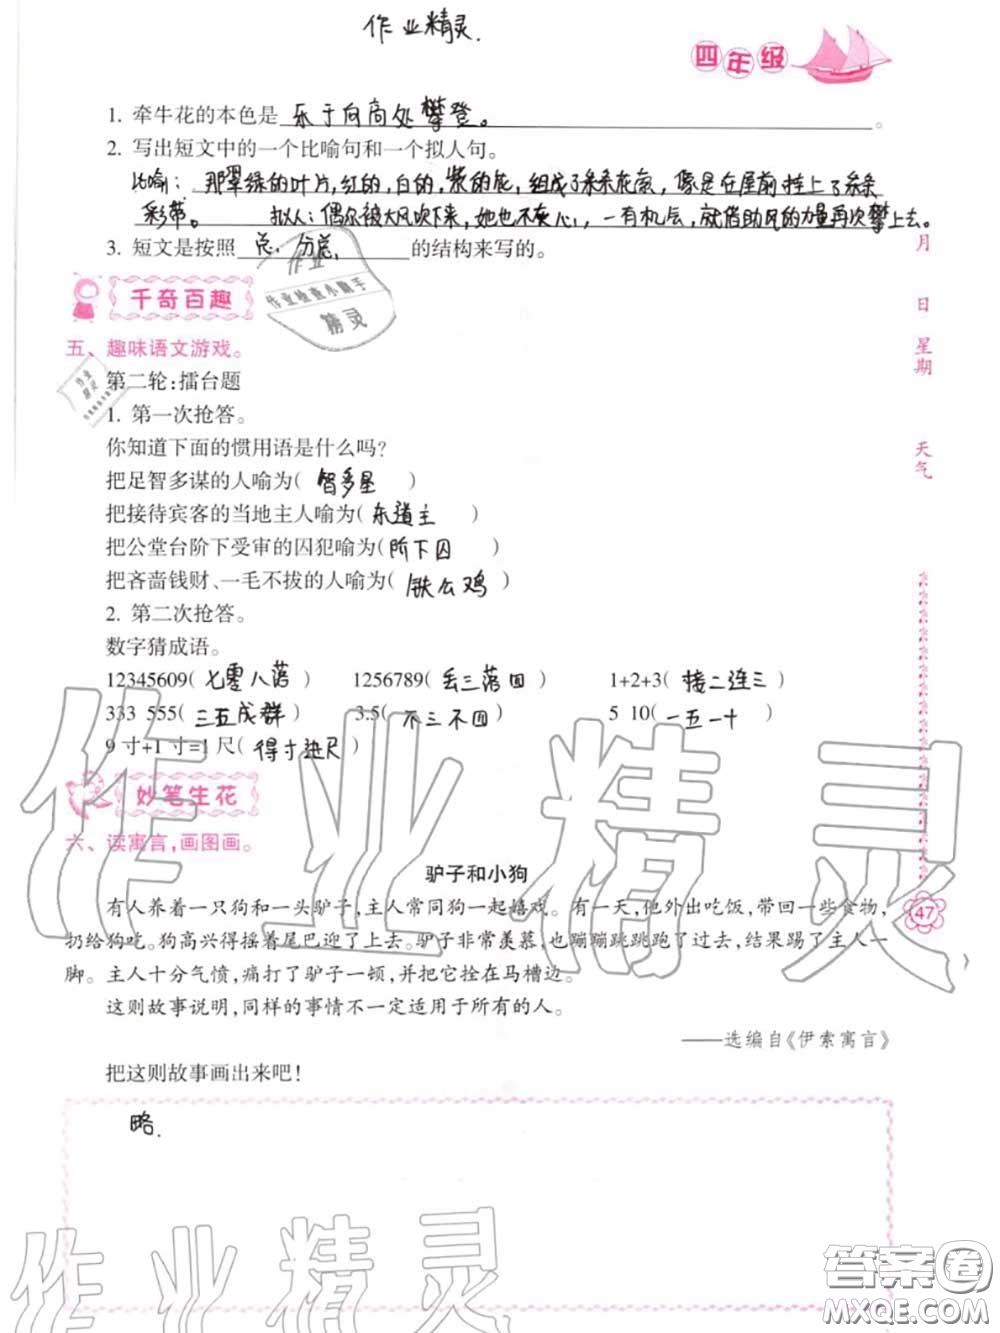 作业精灵.
四年级
1. 牵牛花的本色是 乐于向高处攀登。 。
2. 写出短文中的一个比喻句和一个拟人句。
比喻：那翠绿的叶片,红的,白的,紫的花,组成了条条花氛,像是在屋前挂上了条条
彩带。 拟人：偶尔被大风吹下来,她也不灰心,,一有机会,就借助风的力量再次攀上去。
3. 短文是按照 总.分总, 的结构来写的。
月 日 星期 天气
作业
作业检查小助手
精灵
千奇百趣
五、趣味语文游戏。
第二轮:擂台题
1. 第一次抢答。
你知道下面的惯用语是什么吗?
把足智多谋的人喻为( 智多星 )
把接待宾客的当地主人喻为( 东道主 )
把公堂台阶下受审的囚犯喻为( 阶下囚 )
把吝啬钱财、一毛不拔的人喻为( 铁公鸡 )
2. 第二次抢答。
数字猜成语。
12345609( 七零八落 ) 1256789( 丢三落四 ) 1+2+3( 接二连三 )
333 555( 三五成群 ) 3.5( 不三不四 ) 5 10( 一五一十 )
9 寸+1 寸=1 尺( 得寸进尺 )
妙笔生花
六、读寓言,画图画。
驴子和小狗
有人养着一只狗和一头驴子,主人常同狗一起嬉戏。有一天,他外出吃饭,带回一些食物,
扔给狗吃。狗高兴得摇着尾巴迎了上去。驴子非常羡慕,也蹦蹦跳跳跑了过去,结果踢了主人一
脚。主人十分气愤,痛打了驴子一顿,并把它拴在马槽边。
这则故事说明,同样的事情不一定适用于所有的人。
——选编自《伊索寓言》
47
把这则故事画出来吧!
略.
作业精灵
作业精灵
答案圈
MXQE.COM